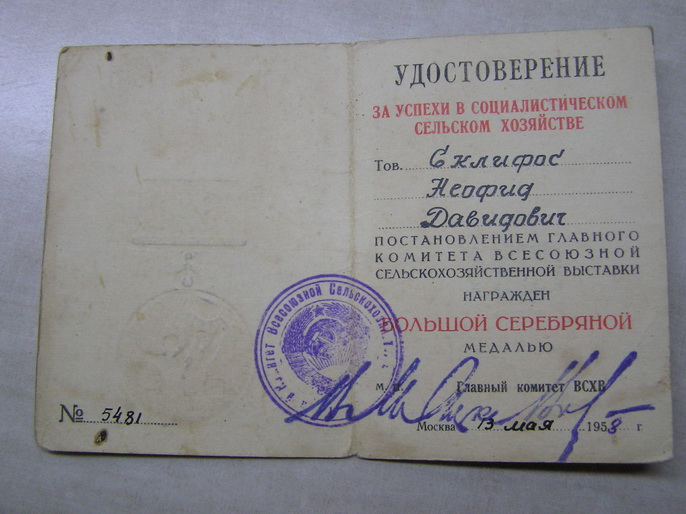 № 5481
УДОСТОВЕРЕНИЕ
ЗА УСПЕХИ В СОЦИАЛИСТИЧЕСКОМ
СЕЛЬСКОМ ХОЗЯЙСТВЕ
Тов. Склифос
Неофид
Давидович
ПОСТАНОВЛЕНИЕМ ГЛАВНОГО
КОМИТЕТА ВСЕСОЮЗНОЙ
СЕЛЬСКОХОЗЯЙСТВЕННОЙ ВЫСТАВКИ
НАГРАЖДЕН
БОЛЬШОЙ СЕРЕБРЯНОЙ
МЕДАЛЬЮ
М. П. Главный комитет ВСХВ
Москва 13 мая 1958 г
Всесоюзной Сельскохоз